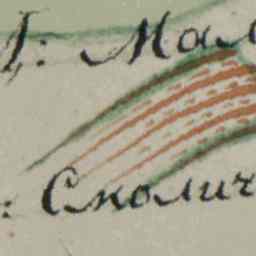 Д: Мал
: Смолич